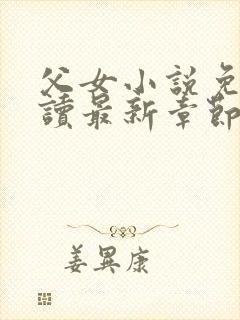 父女小説免
讀最新章節
姜異康